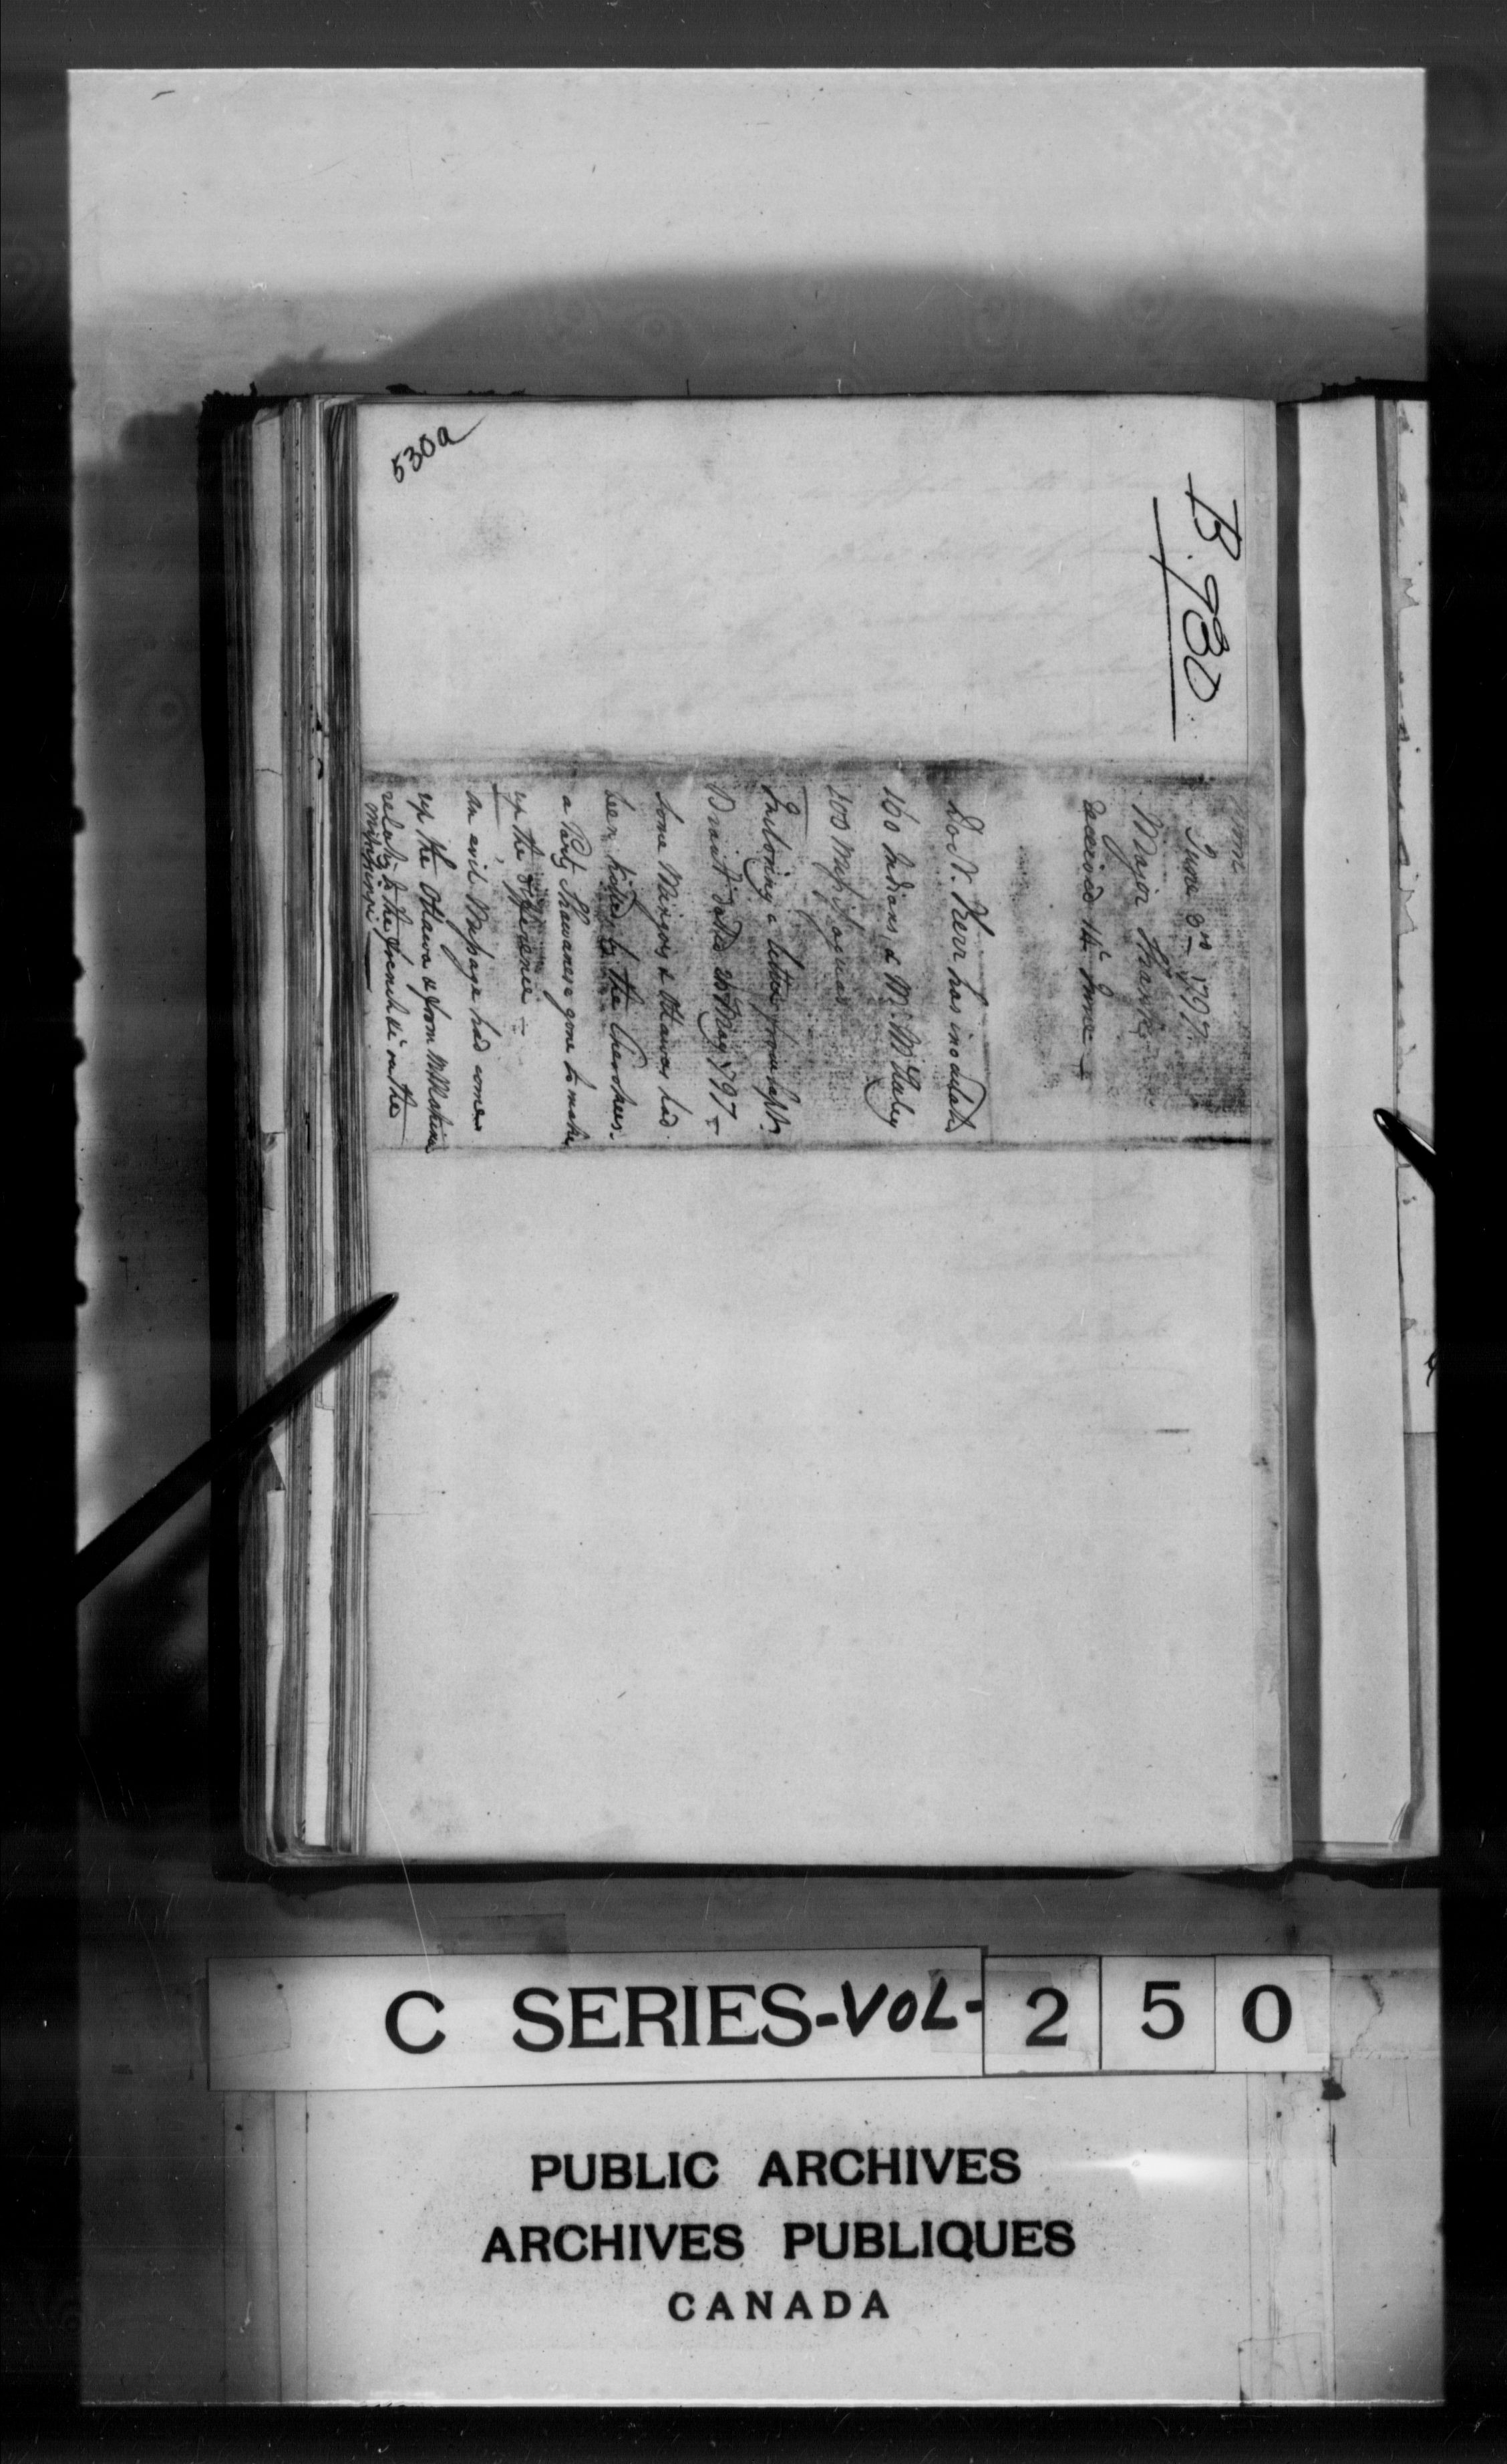 530a
B.930
June 3rd 1797.
Major
Received 14th June
Doctr. Kerr has inoculated
160 Indians & Mr. McAuley
100 Missisaguas
Inclosing a letter from Captn.
Brant dated 25 May 1797
Some Mingoes & Ottawas had
been killed by the Cherokees.
a Party Shawanese gone to make
up the difference
An evil Message had come
up the Ottawa & from
relatg. to the French &c. on the
Missisippi
C SERIES-VOL-250
PUBLIC ARCHIVES
ARCHIVES PUBLIQUES
CANADA